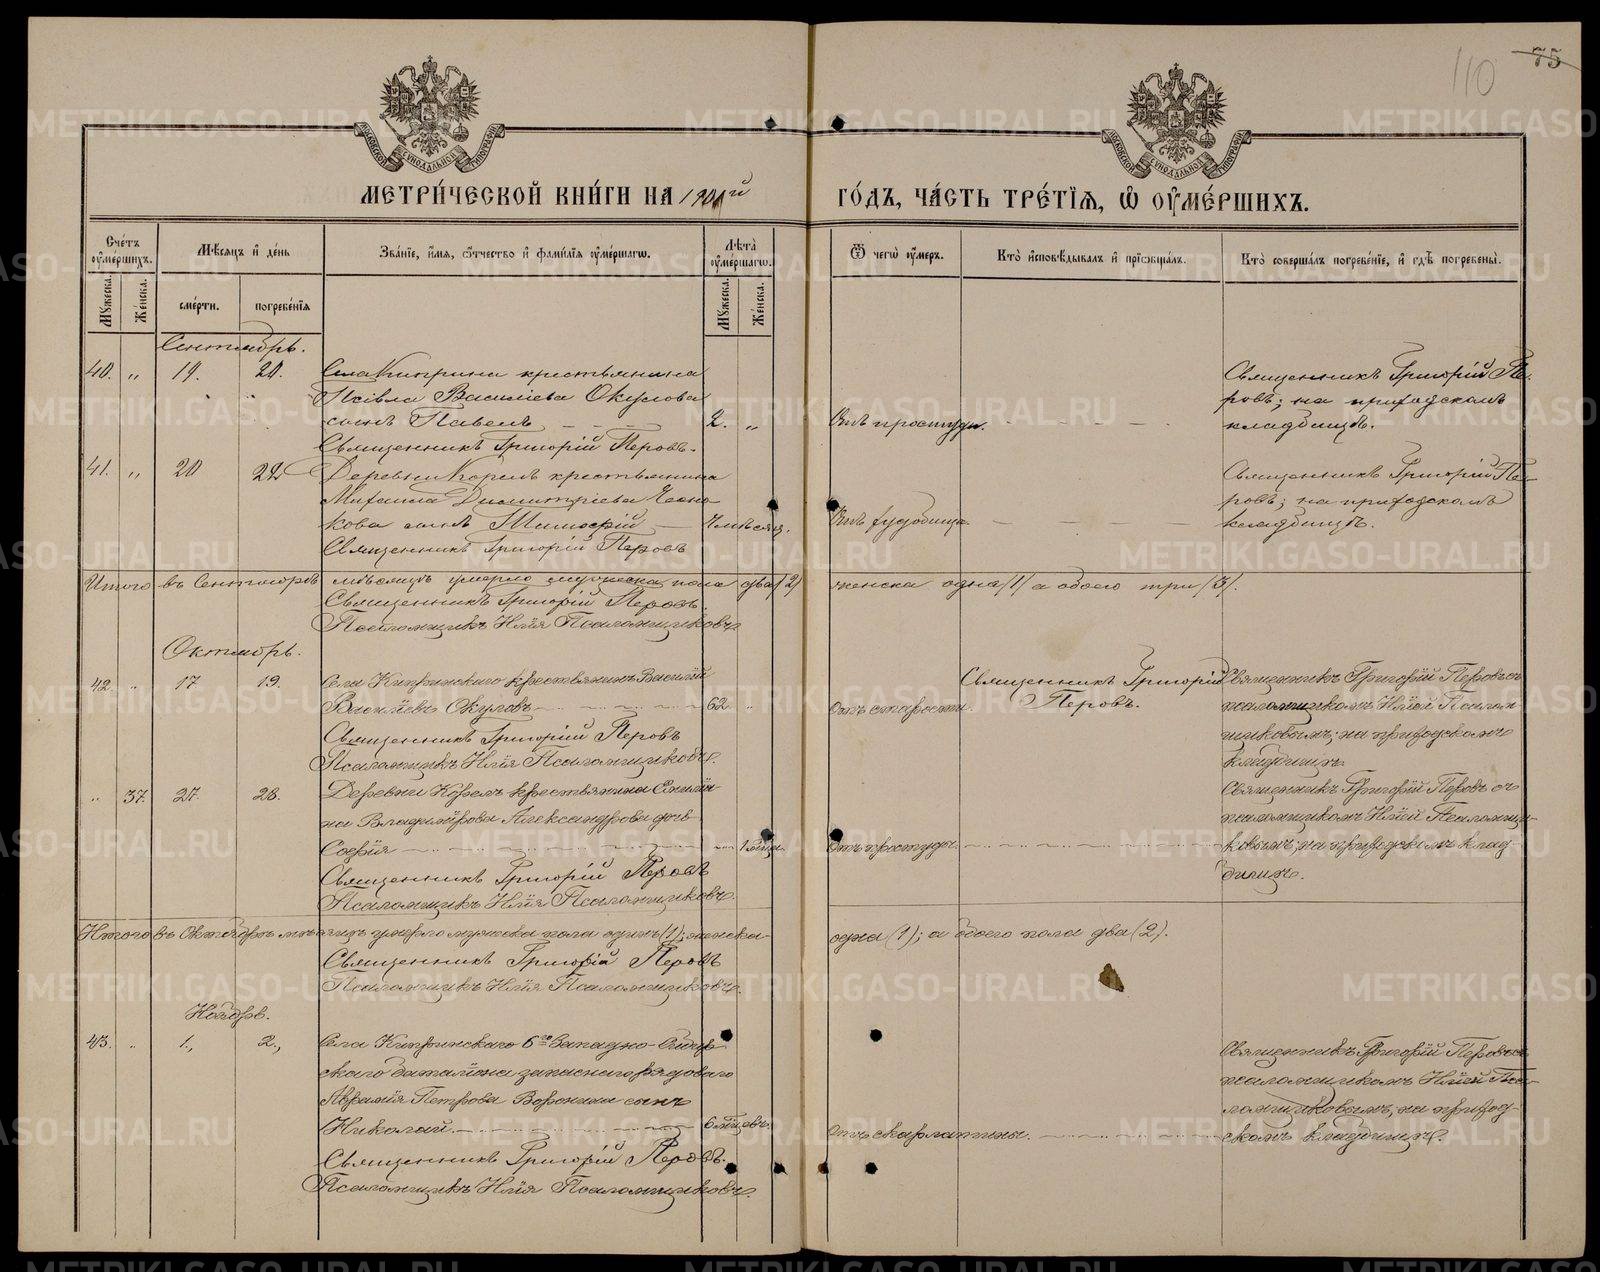 110 75
МОСКОВСКОЙ СѴНОДАЛЬНОЙ ТИПОГРАФІИ
МОСКОВСКОЙ СѴНОДАЛЬНОЙ ТИПОГРАФІИ
МЕТРИ́ЧЕСКОЙ КНИ́ГИ НА 1901й
ГО́ДЪ, ЧА́СТЬ ТРЕ́ТЇѦ, Ѡ ОУМЕ́РШИХЪ.
Сче́тъ оуме́ршихъ.
Мѣсяцъ и де́нь
Зва́нїе, и́мя, о́тчество и фами́лїя оуме́ршагѡ.
Лѣта̀ оуме́ршагѡ.
Ѿ чегѡ̀ оу́меръ.
Кто̀ и҆сповѣ́дывалъ и прїѡбща́лъ.
Кто̀ соверша́лъ погребе́нїе, и гдѣ̀ погребены̀.
Мꙋжеска. Же́нска. сме́рти. погребе́нїя Мꙋжеска. Же́нска.
Сентябрь.
40. „ 19. 20. Села Киприна крестьянина
Василіева Окулова
сынъ Павелъ 2. „
Священникъ Григорій Перовъ.
Отъ простуды.
Священникъ Григорій Пе-
ровъ; на приходскомъ
кладбищѣ.
41. „ 20 22 Деревни Корелъ крестьянина
Михаила Димитріева
кова сынъ Тимофей 4 мѣсяц.
Священникъ Григорій Перовъ
Отъ худобища
Священникъ Григорій Пе-
ровъ; на приходскомъ
кладбищѣ.
Итого въ Сентябрѣ мѣсяцѣ умерло мужеска пола два (2) женска одна (1) а обоего три (3).
Священникъ Григорій Перовъ.
Псаломщикъ Илія Псаломщиковъ.
Октябрь.
42 „ 17 19. Села Кипринскаго крестьянинъ Василій
Окуловъ 62 „
Священникъ Григорій Перовъ
Псаломщикъ Илія Псаломщиковъ.
Отъ старости.
Священникъ Григорій
Перовъ.
Священникъ Григорій Перовъ съ
псаломщикомъ Иліей Псалом-
щиковымъ; на приходскомъ
кладбищѣ.
„ 37. 27. 28. Деревни Корелъ крестьянина
на Владимірова Александрова дочь
Софія 1 мѣсяц.
Священникъ Григорій Перовъ
Псаломщикъ Илія Псаломщиковъ.
Отъ простуды
Священникъ Григорій Перовъ съ
псаломщикомъ Иліей Псаломщи-
ковымъ; на приходскомъ клад-
бищѣ.
Итого въ Октябрѣ мѣсяцѣ умерло мужска пола одинъ (1); женска - одна (1); а обоего пола два (2).
Священникъ Григорій Перовъ
Псаломщикъ Илія Псаломщиковъ.
Ноябрь.
43. „ 1., 2., Села Кипринскаго 6го Западно-Сибир-
скаго баталіона запаснаго рядоваго
Авраамія Петрова Воронина сынъ
Николай. 6 мѣсяцевъ
Священникъ Григорій Перовъ.
Псаломщикъ Илія Псаломщиковъ.
Отъ скарлатины.
Священникъ Григорій Перовъ съ
псаломщикомъ Иліей Пса-
ломщиковымъ; на приход-
скомъ кладбищѣ.
METRIKI.GASO-URAL.RU